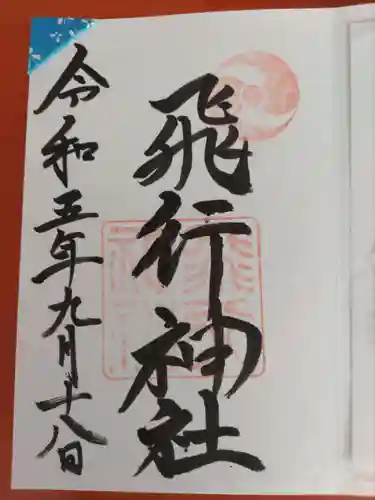 飛行神社
令和五年九月十八日